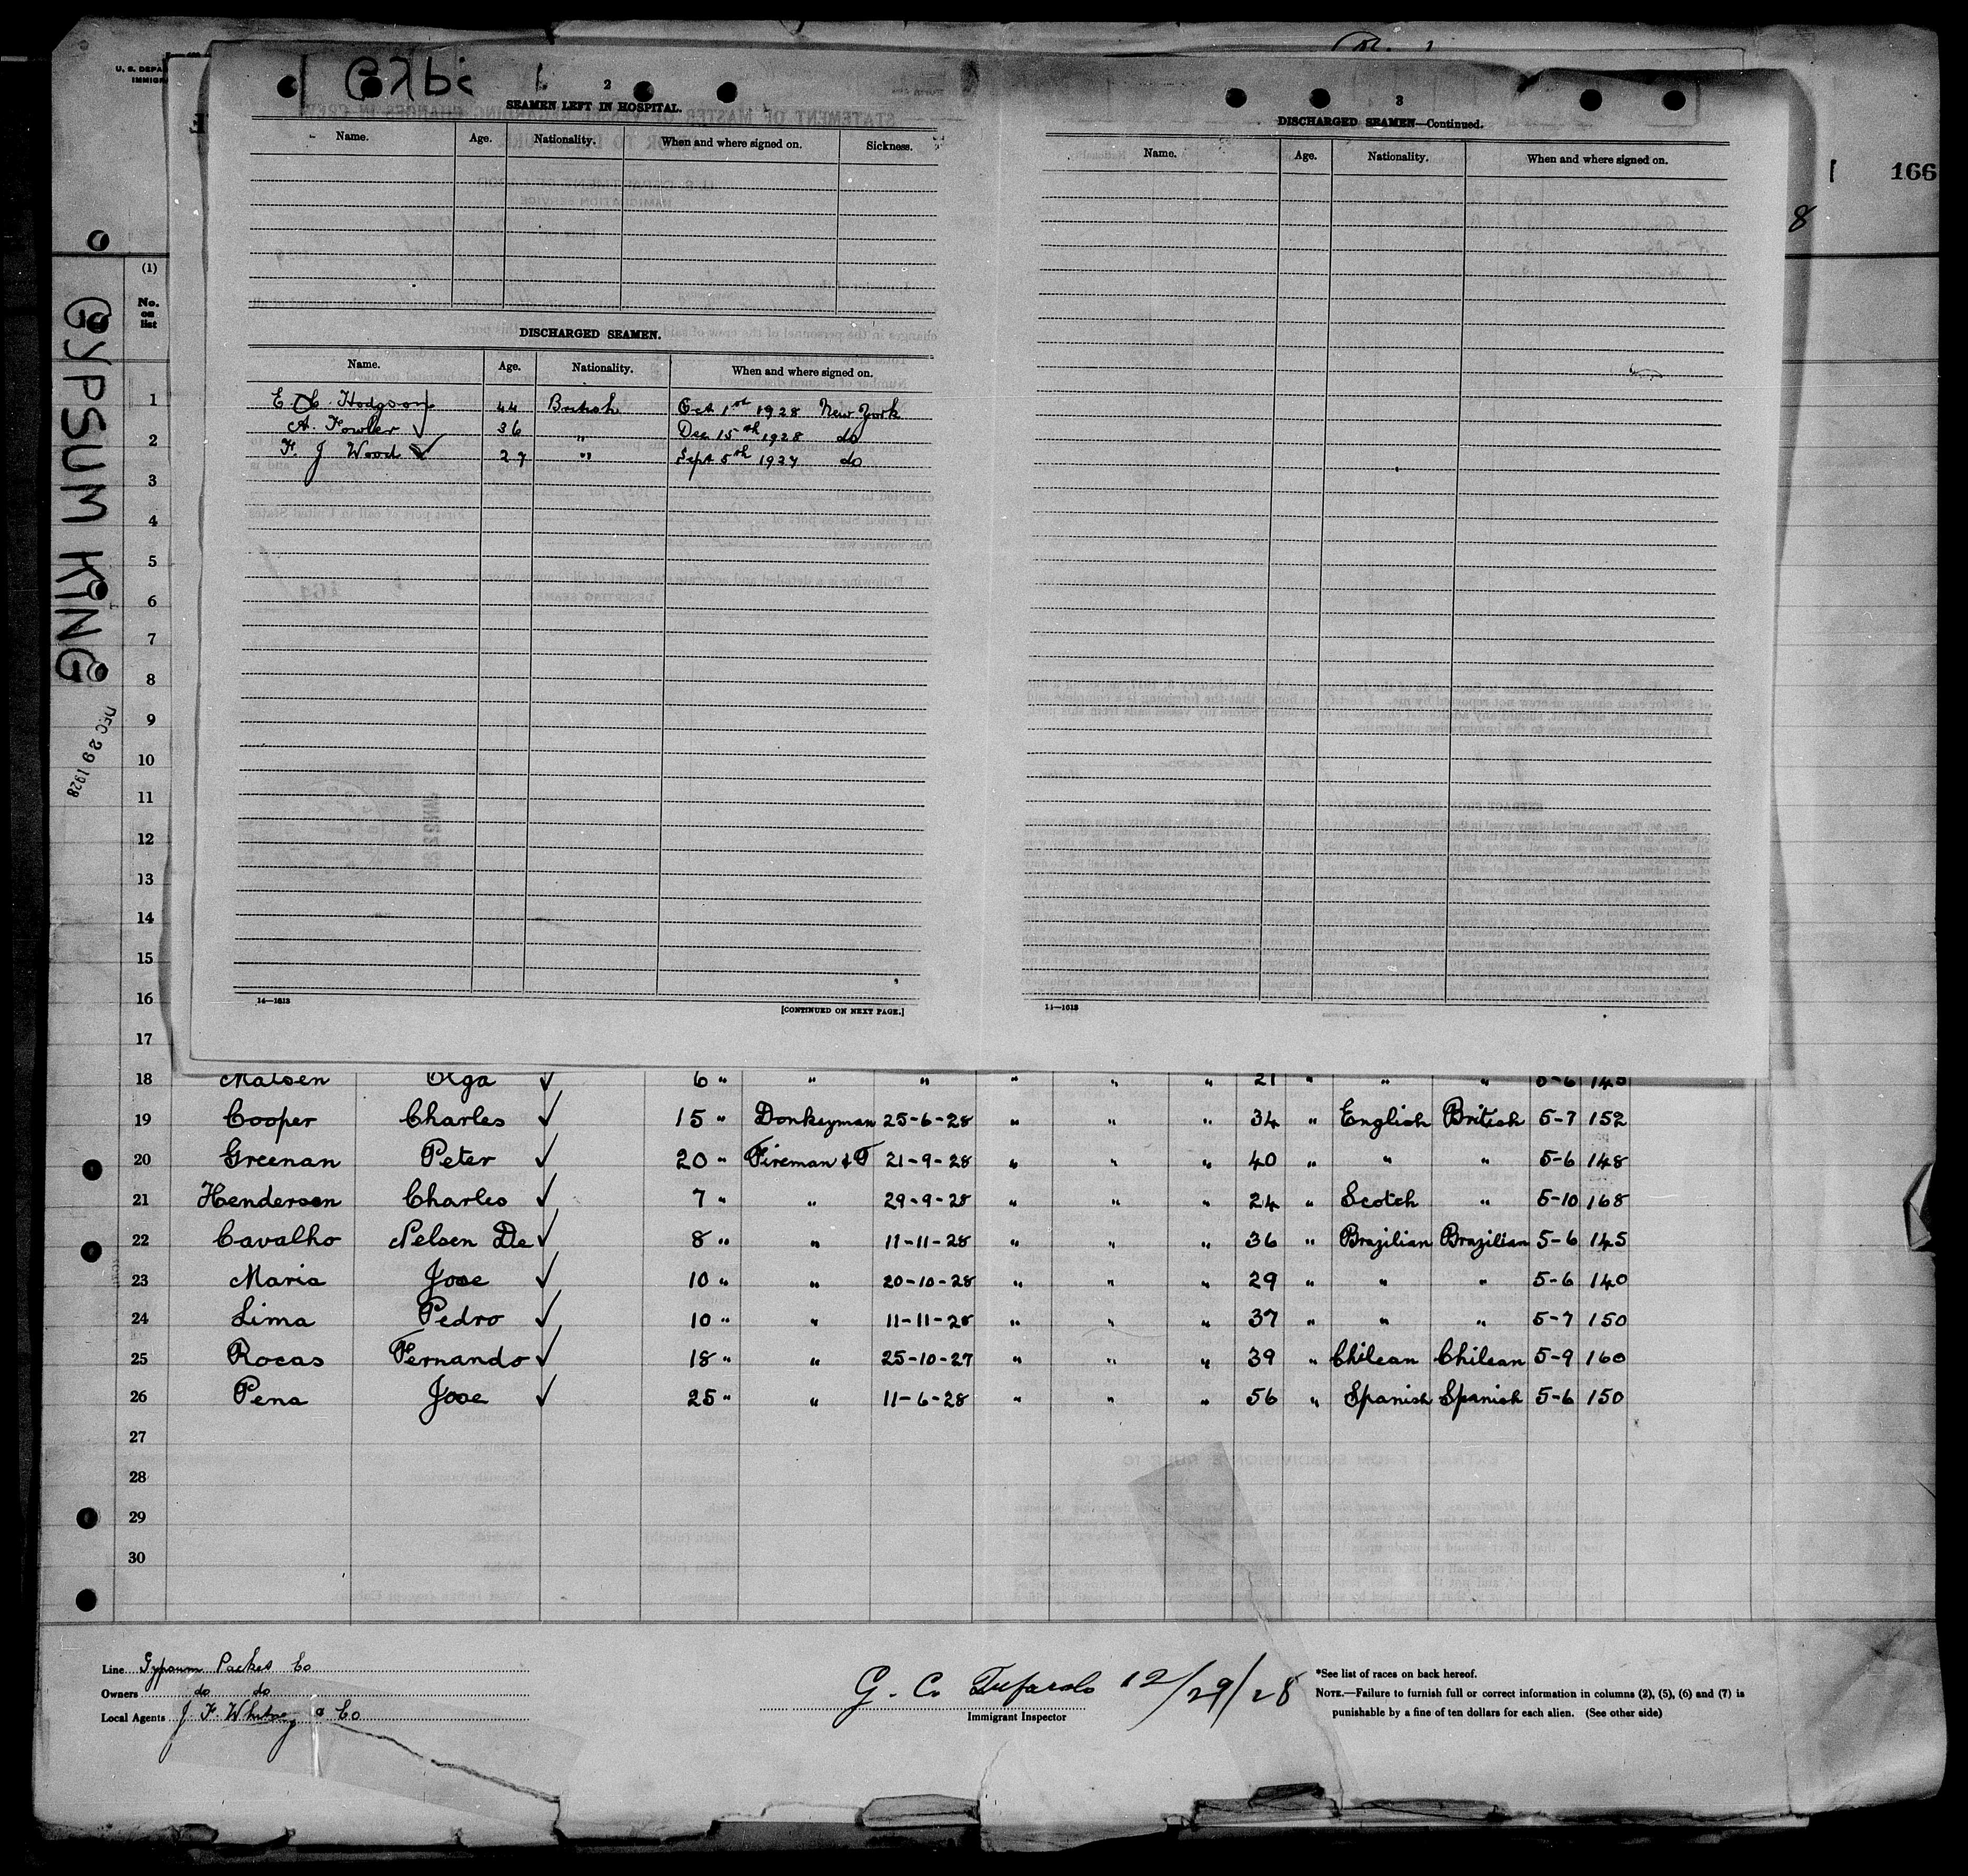 U. S. DEPA
IMMIGRA
166
8
2
SEAMEN LEFT IN HOSPITAL.
Name. Age. Nationality. When and where signed on. Sickness.
DISCHARGED SEAMEN.
Name. Age. Nationality. When and where signed on.
E. C. Hodgson 44 British Oct 1st 1928 New York
A. Fowler 36 " Dec 15th 1928 do
F. J Wood 27 " Sept 5th 1927 do
14—1613
[CONTINUED ON NEXT PAGE.]
3
DISCHARGED SEAMEN—Continued.
Name. Age. Nationality. When and where signed on.
14—1613
GYPSUM KING
DEC 29 1928
(1)
No.
on
list
1
2
3
4
5
6
7
8
9
10
11
12
13
14
15
16
17
18 Madsen Olga ✓ 6 " " " " " " 21 " " " 5-6 140
19 Cooper Charles ✓ 15 " Donkeyman 25-6-28 " " " 34 " English British 5-7 152
20 Greenan Peter ✓ 20 " Fireman & T 21-9-28 " " " 40 " " " 5-6 148
21 Henderson Charles ✓ 7 " " 29-9-28 " " " 24 " Scotch " 5-10 168
22 Cavalho Nelson De ✓ 8 " " 11-11-28 " " " 36 " Brazilian Brazilian 5-6 145
23 Maria Jose ✓ 10 " " 20-10-28 " " " 29 " " " 5-6 140
24 Lima Pedro ✓ 10 " " 11-11-28 " " " 37 " " " 5-7 150
25 Rocas Fernando ✓ 18 " " 25-10-27 " " " 39 " Chilean Chilean 5-9 160
26 Pena Jose ✓ 25 " " 11-6-28 " " " 56 " Spanish Spanish 5-6 150
27
28
29
30
Line Gypsum Packet Co
Owners do do
Local Agents J F Whitney & Co
G. C. 12/29/28
Immigrant Inspector
*See list of races on back hereof.
NOTE.—Failure to furnish full or correct information in columns (2), (5), (6) and (7) is
punishable by a fine of ten dollars for each alien. (See other side)